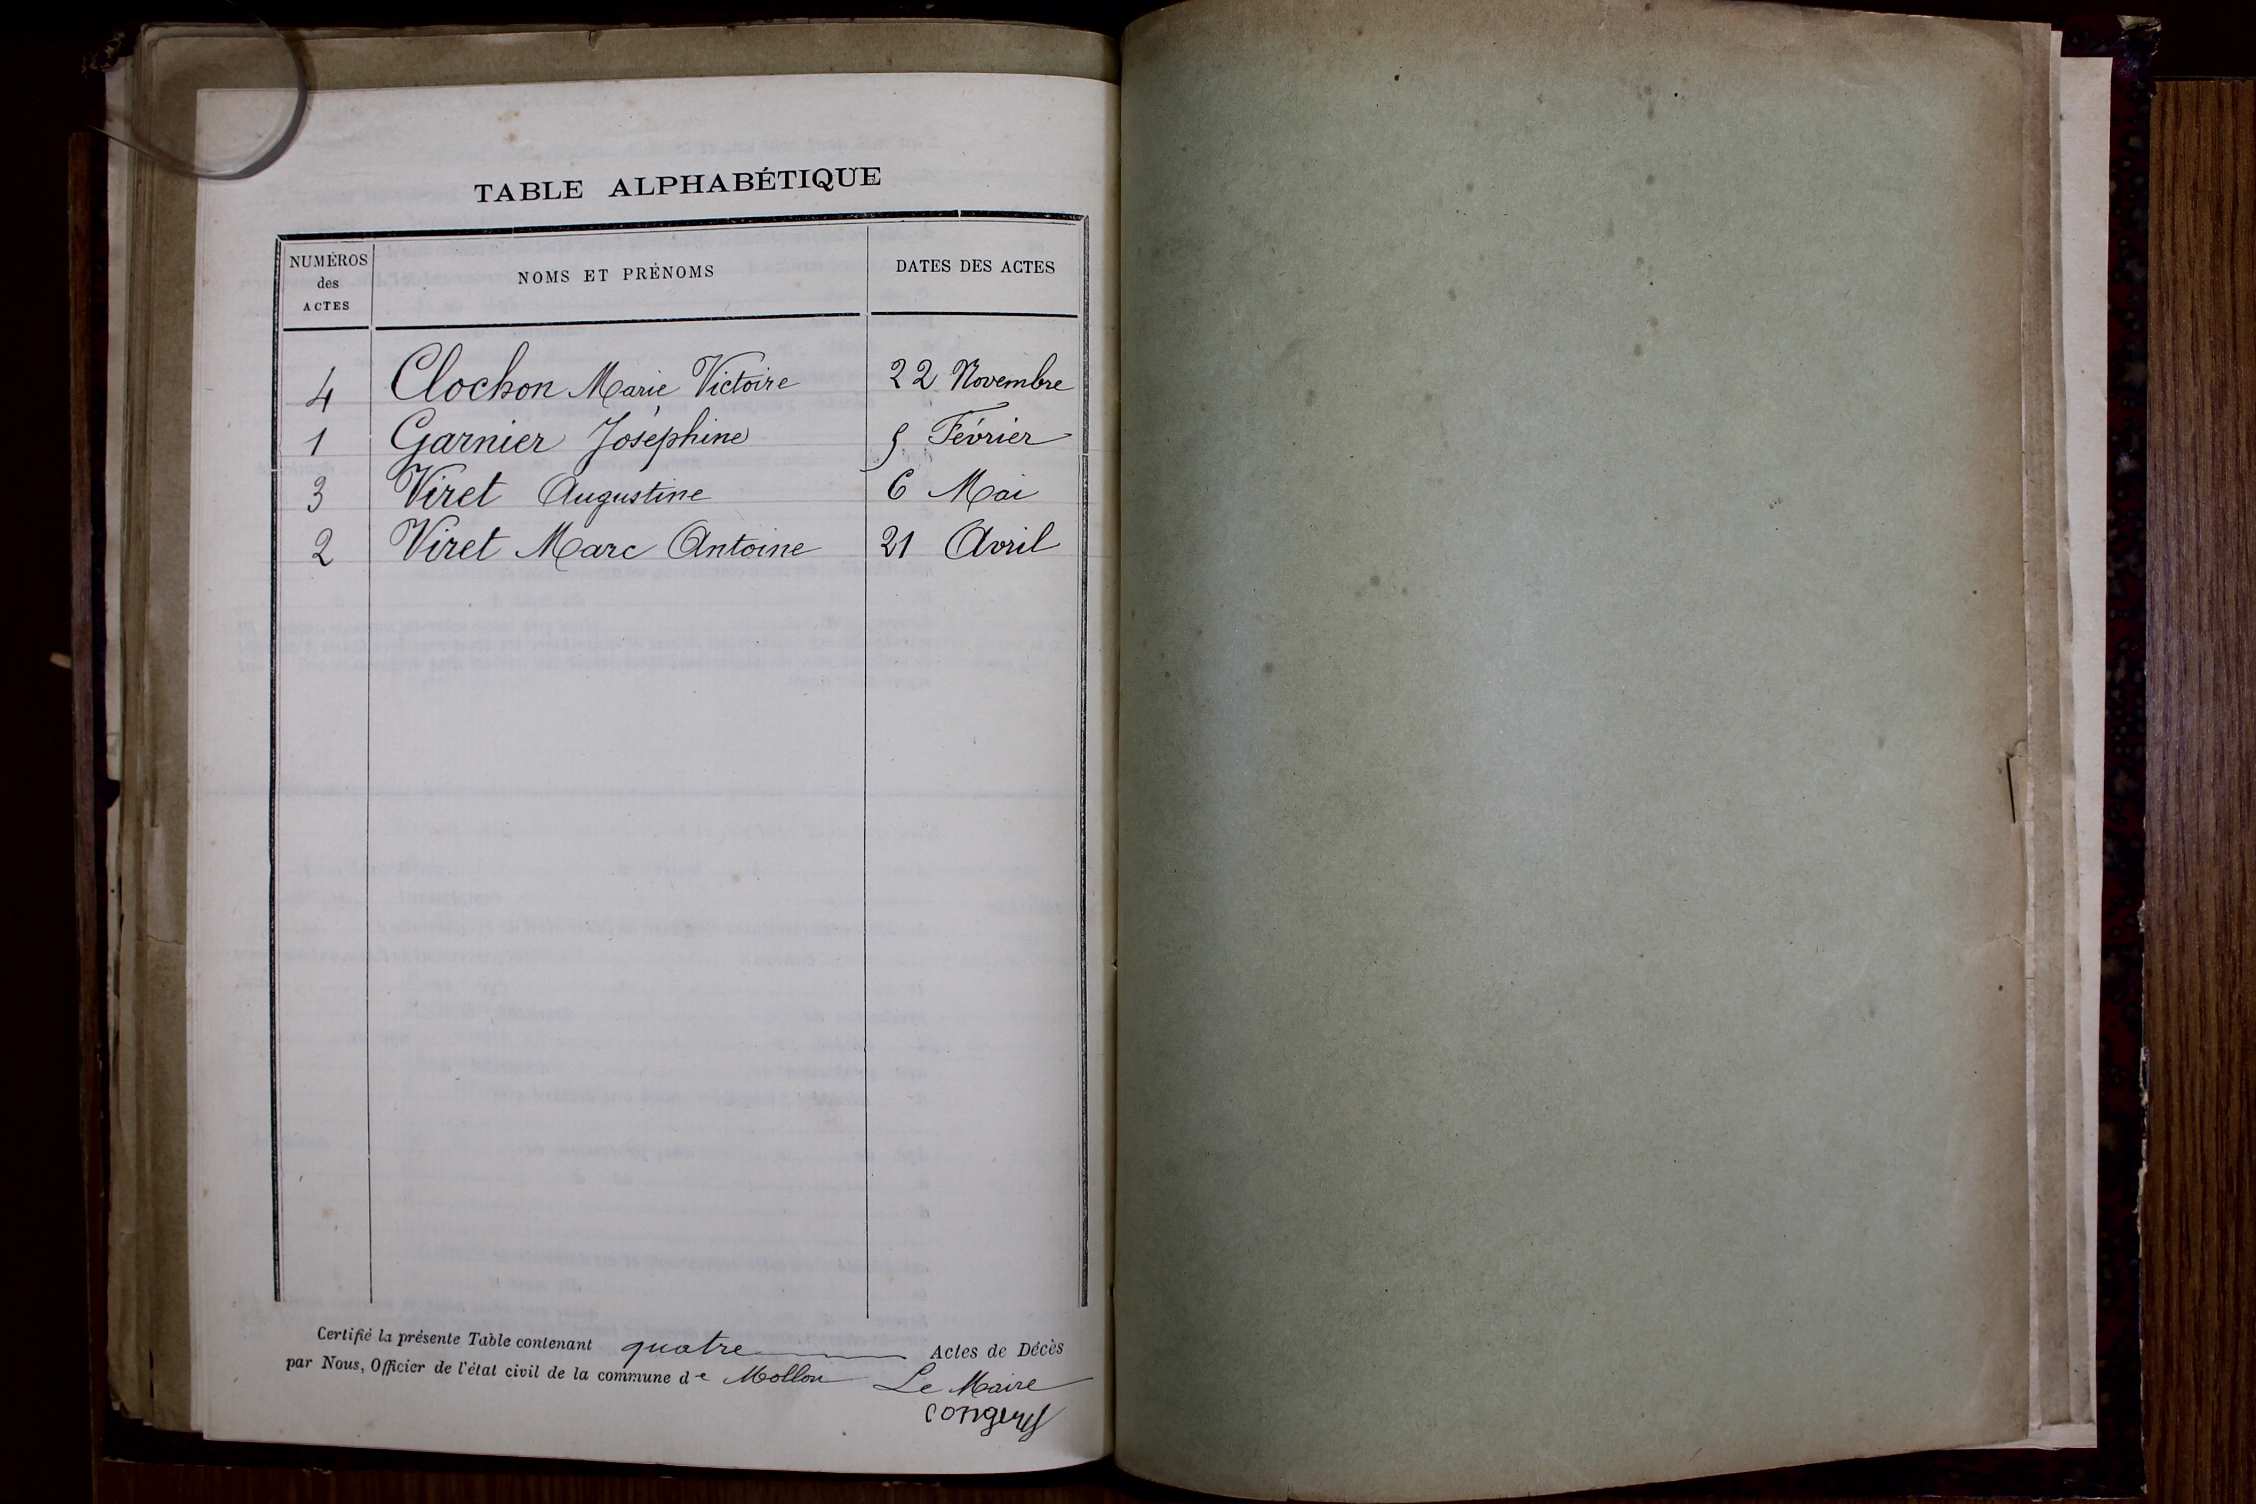 TABLE ALPHABÉTIQUE
NUMÉROS des ACTES NOMS ET PRÉNOMS DATES DES ACTES
4 Clochon Marie Victoire 22 Novembre
1 Garnier Joséphine 5 Février
3 Viret Augustine 6 Mai
2 Viret Marc Antoine 21 Avril
Certifié la présente Table contenant quatre Actes de Décès
par Nous, Officier de l'état civil de la commune de Mollon Le Maire